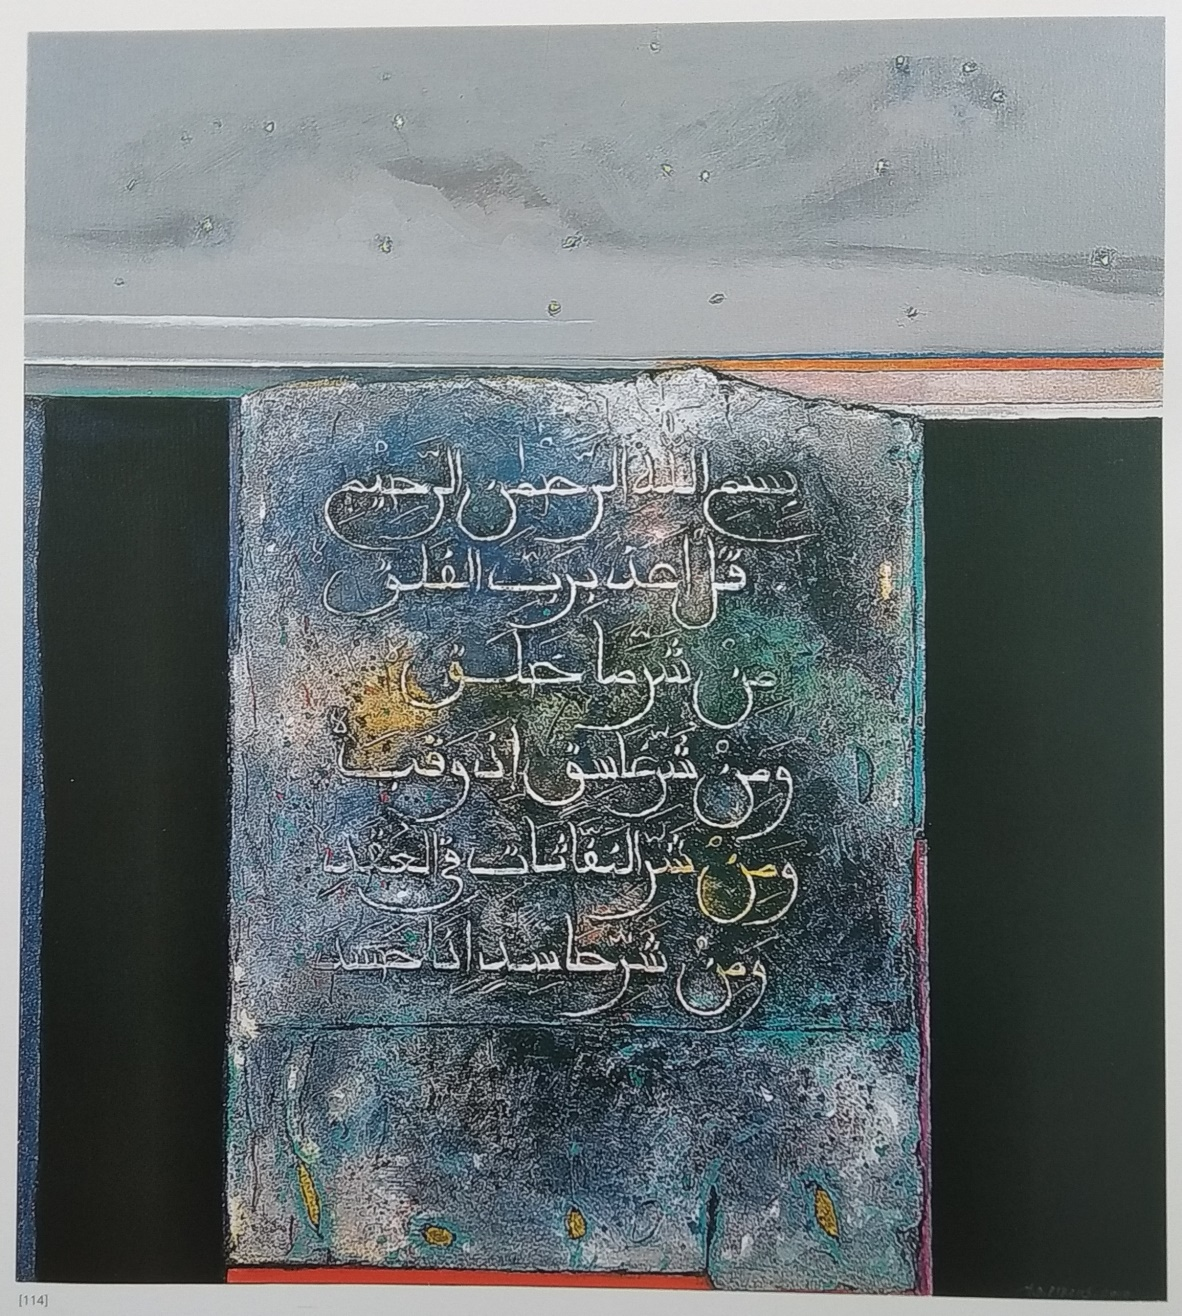 بِسْمِ اللّٰه الرّحْمٰن الرّحيْم
قُل اعذ بربّ الفلق
منْ شرّ ما خلق
ومنْ شرّ غاسق اذا وقب
ومنْ شرّ النفّاثات في العقد
ومنْ شرّ حاسد اذا حسد
[114]